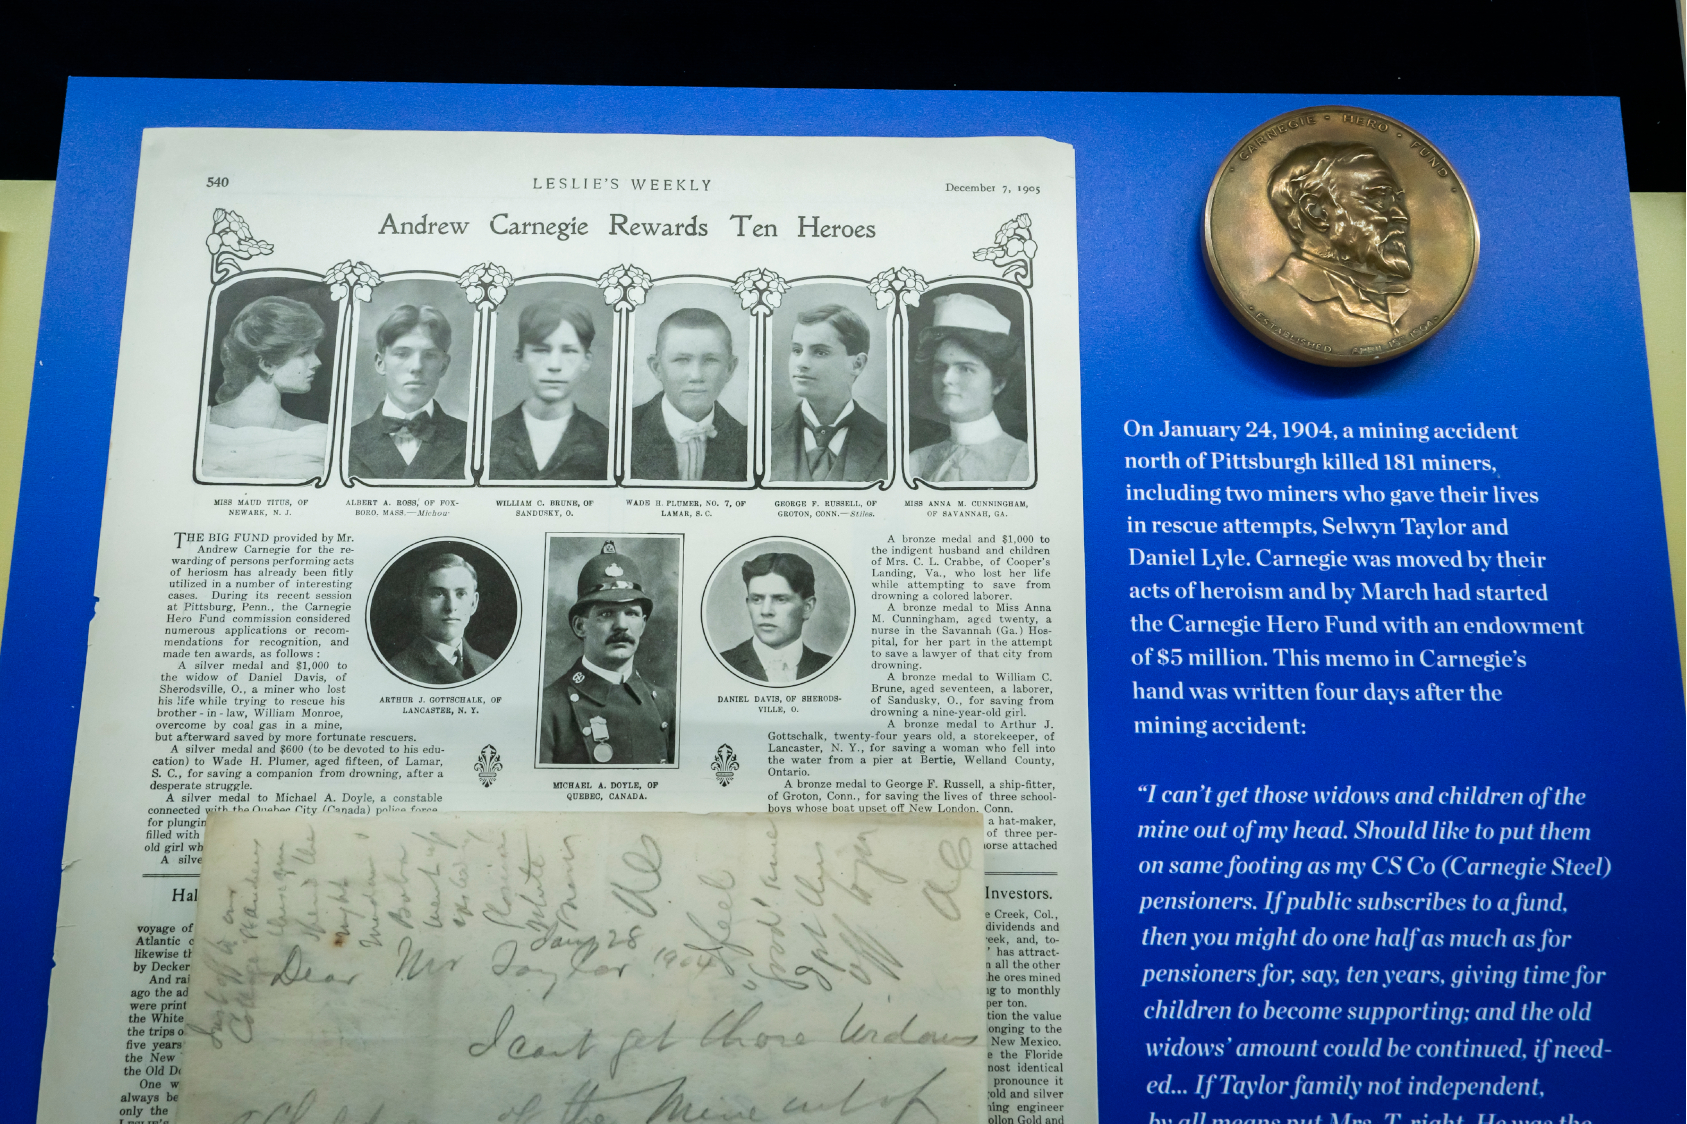 540
LESLIE'S WEEKLY
December 7, 1905
Andrew Carnegie Rewards Ten Heroes
MISS MAUD TITUS, OF
NEWARK, N. J.
ALBERT A. ROSS, OF FOX-
BORO, MASS.—Michou
WILLIAM C. BRUNE, OF
SANDUSKY, O.
WADE H. PLUMER, NO. 7, OF
LAMAR, S. C.
GEORGE F. RUSSELL, OF
GROTON, CONN.—Stiles.
MISS ANNA M. CUNNINGHAM,
OF SAVANNAH, GA.
THE BIG FUND provided by Mr.
Andrew Carnegie for the re-
warding of persons performing acts
of heriosm has already been fitly
utilized in a number of interesting
cases. During its recent session
at Pittsburg, Penn., the Carnegie
Hero Fund commission considered
numerous applications or recom-
mendations for recognition, and
made ten awards, as follows :
A silver medal and $1,000 to
the widow of Daniel Davis, of
Sherodsville, O., a miner who lost
his life while trying to rescue his
brother-in-law, William Monroe,
overcome by coal gas in a mine,
but afterward saved by more fortunate rescuers.
A silver medal and $600 (to be devoted to his edu-
cation) to Wade H. Plumer, aged fifteen, of Lamar,
S. C., for saving a companion from drowning, after a
desperate struggle.
A silver medal to Michael A. Doyle, a constable
connected with the Quebec City (Canada) police force,
for plungin
filled with
old girl wh
A silve
ARTHUR J. GOTTSCHALK, OF
LANCASTER, N. Y.
MICHAEL A. DOYLE, OF
QUEBEC, CANADA.
DANIEL DAVIS, OF SHERODS-
VILLE, O.
A bronze medal and $1,000 to
the indigent husband and children
of Mrs. C. L. Crabbe, of Cooper's
Landing, Va., who lost her life
while attempting to save from
drowning a colored laborer.
A bronze medal to Miss Anna
M. Cunningham, aged twenty, a
nurse in the Savannah (Ga.) Hos-
pital, for her part in the attempt
to save a lawyer of that city from
drowning.
A bronze medal to William C.
Brune, aged seventeen, a laborer,
of Sandusky, O., for saving from
drowning a nine-year-old girl.
A bronze medal to Arthur J.
Gottschalk, twenty-four years old, a storekeeper, of
Lancaster, N. Y., for saving a woman who fell into
the water from a pier at Bertie, Welland County,
Ontario.
A bronze medal to George F. Russell, a ship-fitter,
of Groton, Conn., for saving the lives of three school-
boys whose boat upset off New London, Conn.
a hat-maker,
of three per-
horse attached
Hal
voyage of
Atlantic c
likewise th
by Decker
And rai
ago the ad
were print
the White
the trips o
five years
the New
the Old Do
One w
always be
only the
Investors.
e Creek, Col.,
dividends and
reek, and, to-
has attract-
n all the other
he ores mined
ng to monthly
per ton.
tion the value
onging to the
New Mexico.
e the Floride
most identical
pronounce it
gold and silver
ning engineer
ollon Gold and
Jany 28
1904
Dear Mr Taylor
I cant get those widows
of the mine out of
CARNEGIE · HERO · FUND
ESTABLISHED APRIL 15, 1904
On January 24, 1904, a mining accident
north of Pittsburgh killed 181 miners,
including two miners who gave their lives
in rescue attempts, Selwyn Taylor and
Daniel Lyle. Carnegie was moved by their
acts of heroism and by March had started
the Carnegie Hero Fund with an endowment
of $5 million. This memo in Carnegie's
hand was written four days after the
mining accident:
“I can't get those widows and children of the
mine out of my head. Should like to put them
on same footing as my CS Co (Carnegie Steel)
pensioners. If public subscribes to a fund,
then you might do one half as much as for
pensioners for, say, ten years, giving time for
children to become supporting; and the old
widows' amount could be continued, if need-
ed... If Taylor family not independent,
by all means put Mrs. T. right. He was the